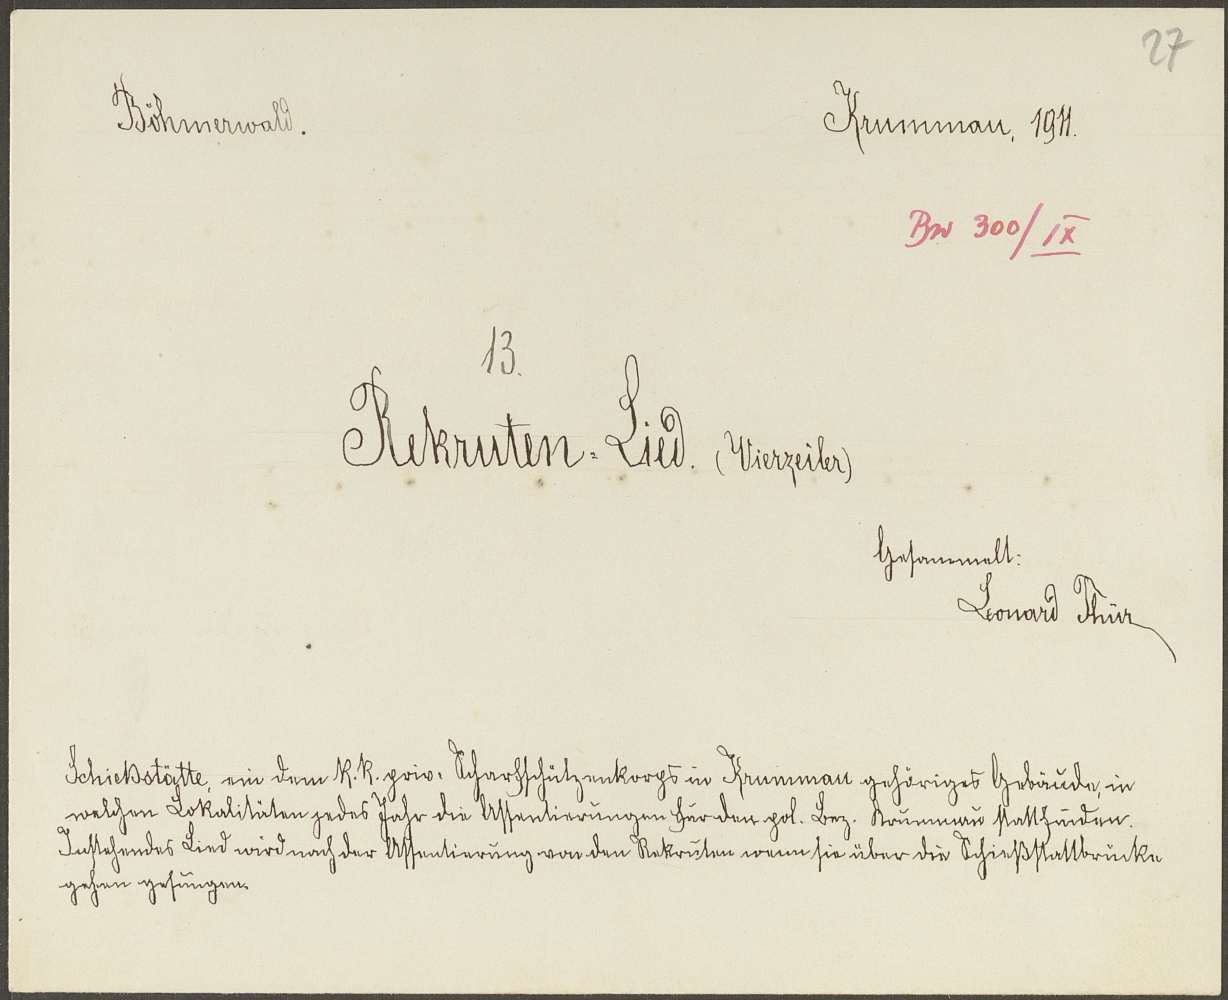 27
Böhmerwald.
Krummau, 1911.
Bw 300/IX
13.
Rekruten-Lied. (Vierzeiler)
Gesammelt:
Leonard Thür
Schießstätte, ein dem k. k. priv. Scharfschützenkorps in Krummau gehöriges Gebäude, in
welchen Lokalitäten jedes Jahr die Assentierungen für den pol. Bez. Krummau stattfinden.
Instehendes Lied wird nach der Assentierung von den Rekruten wenn sie über die Schießstattbrücke
gehen gesungen.